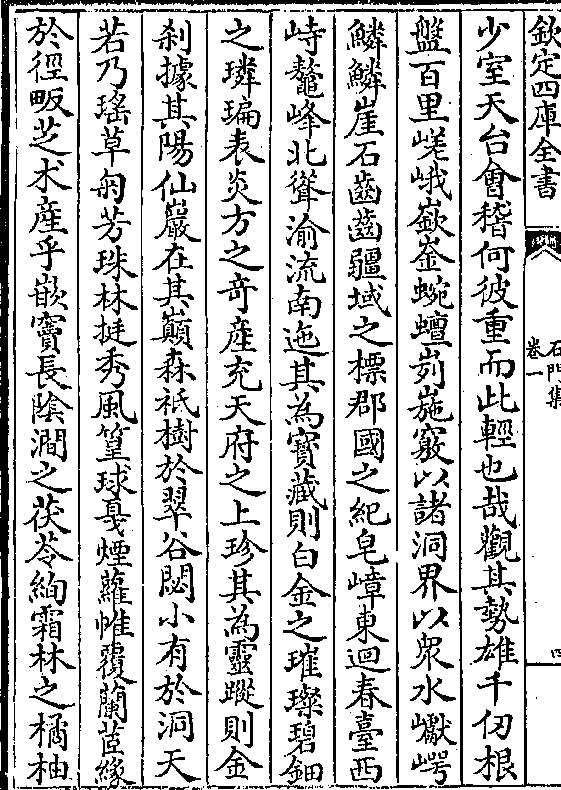 欽定四庫全書
石門集
卷一
四
少室天台會稽何彼重而此輕也哉觀其勢雄千仞根
盤百里嵯峨嶔崟蜿蟺峛崺竅以諸洞界以衆水巘崿
鱗鱗崖石齒齒疆域之標郡國之紀皂嶂東迴春臺西
峙鼇峰北聳渝流南迤其為寶藏則白金之璀璨碧鈿
之璘㻞表炎方之竒産充天府之上珍其為靈蹤則金
刹據其陽仙巖在其巔森祇樹於翠谷閟小有於洞天
若乃瑤草匊芳珠林挺秀風篁球戞煙蘿帷覆蘭茝緣
於徑畈芝术産乎嵌竇長陰澗之茯苓絢霜林之橘柚